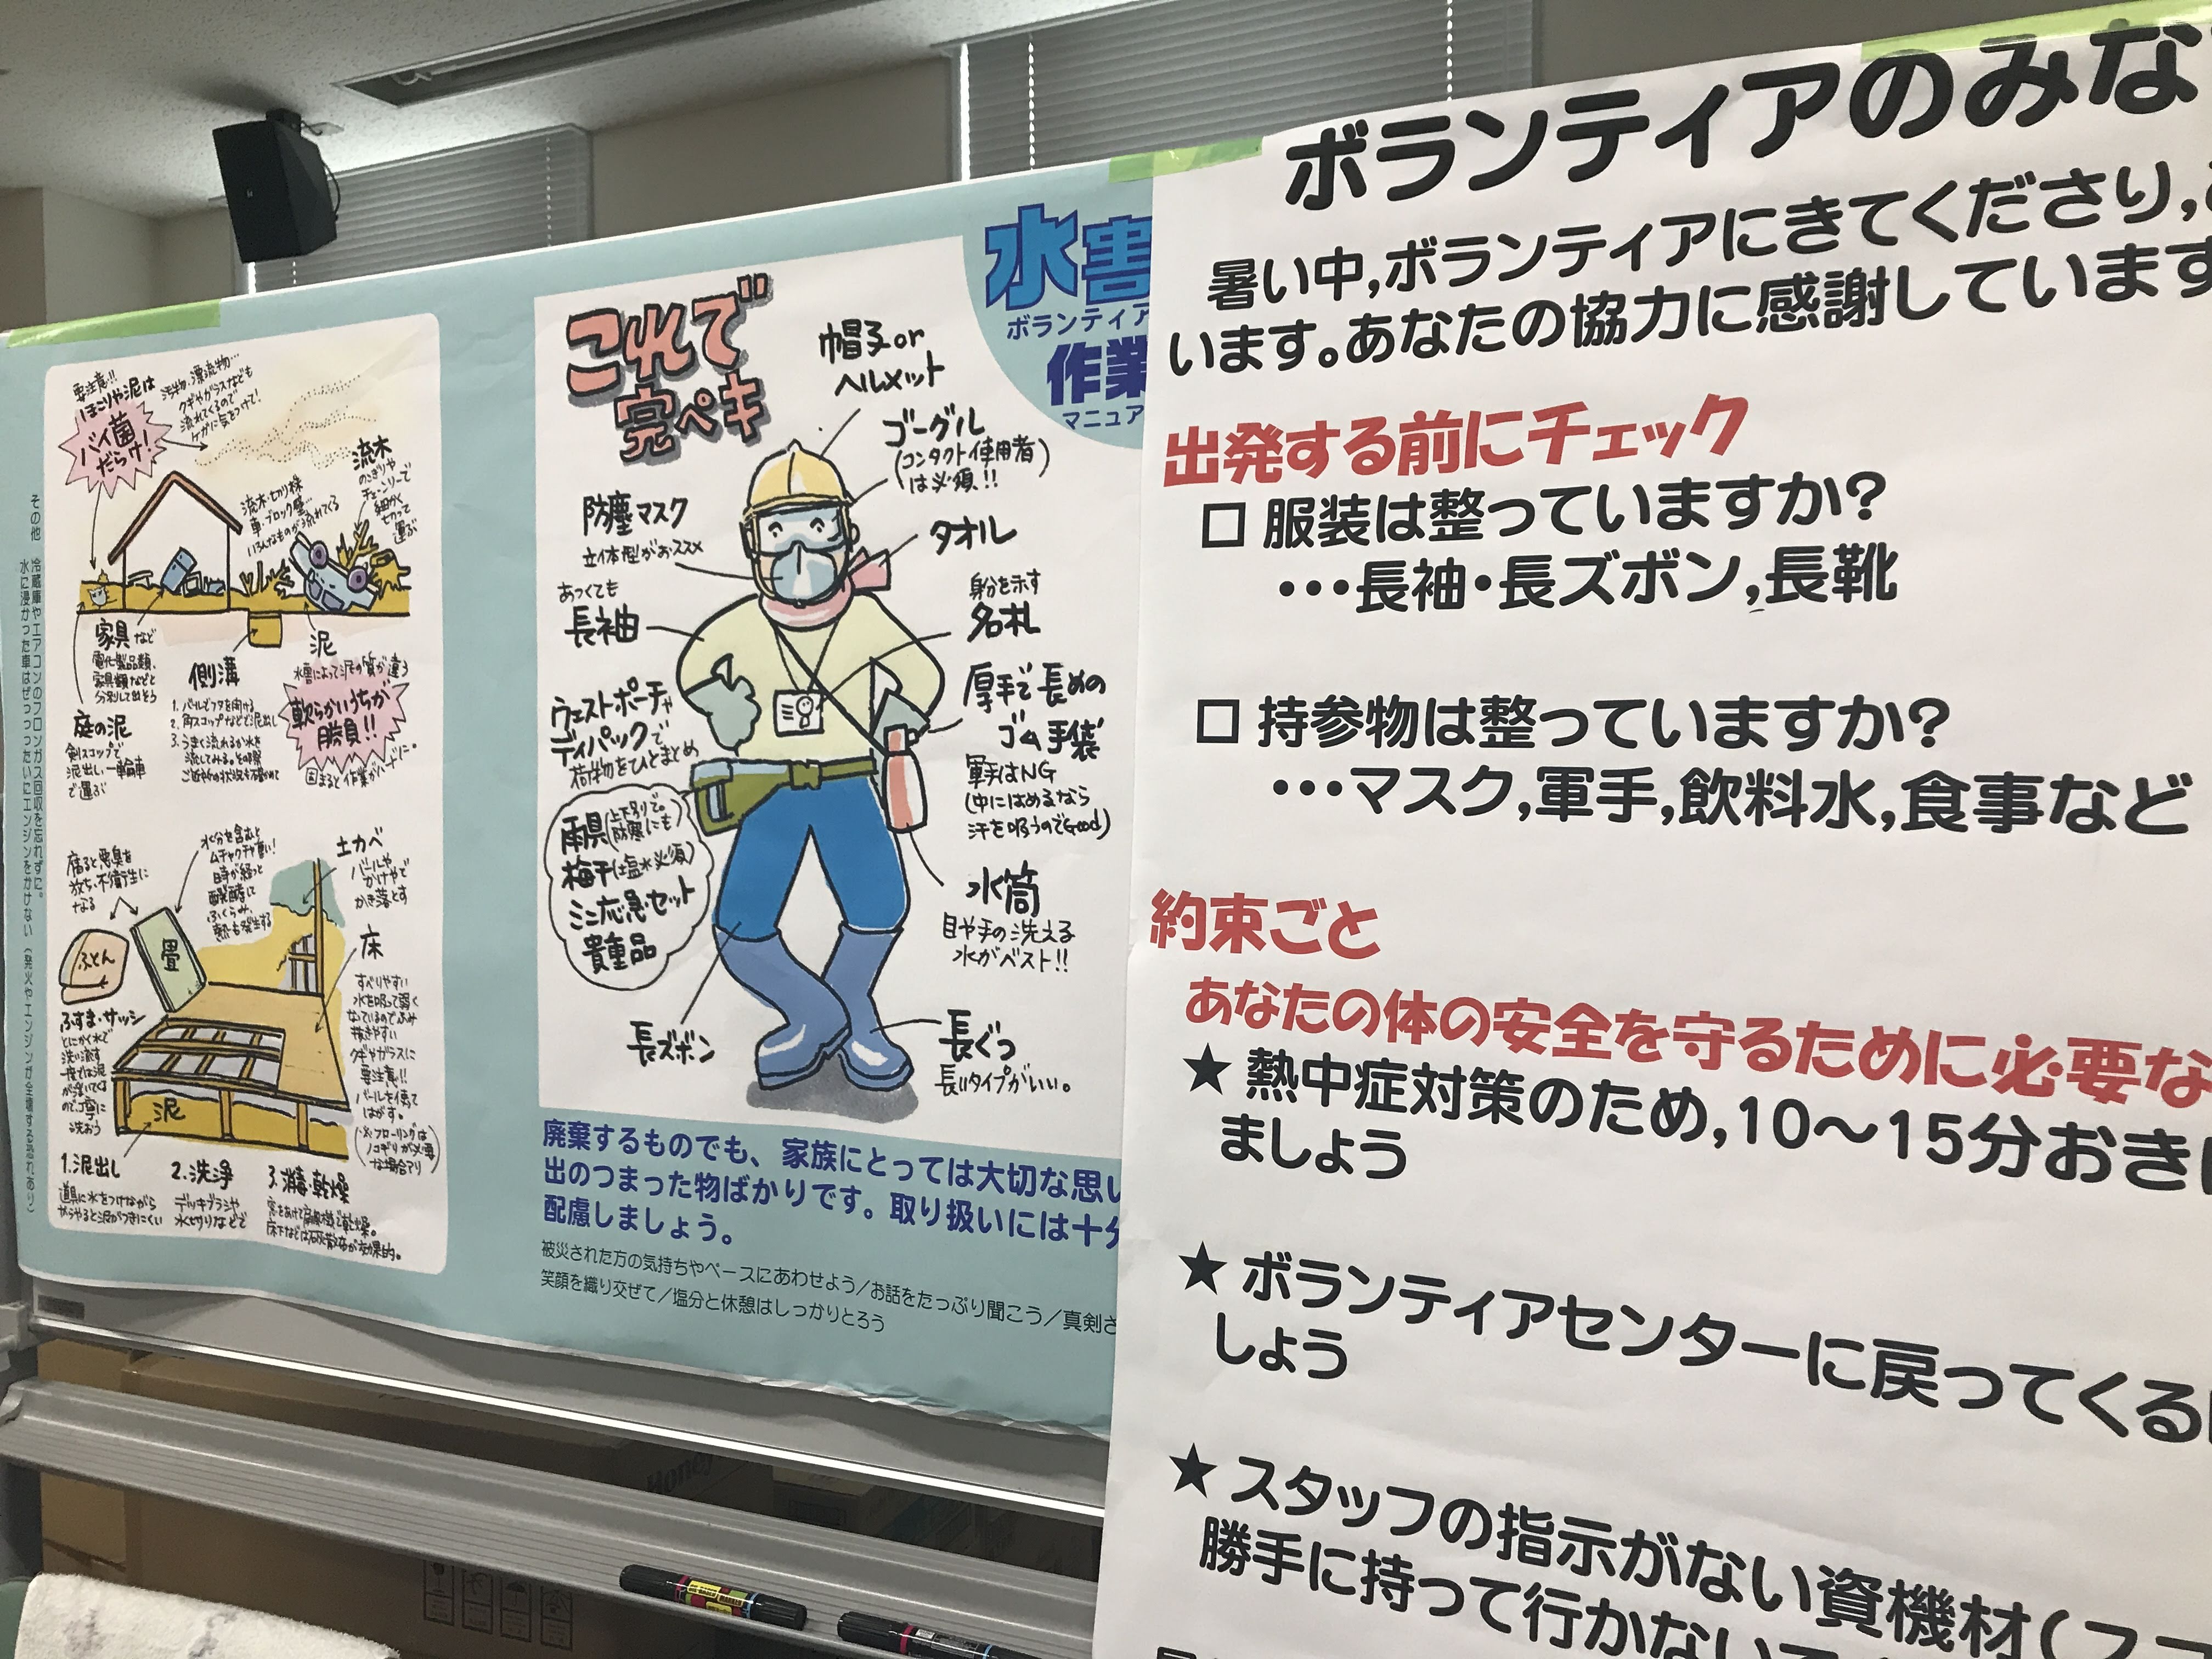 要注意!!
ほこりや泥は
バイ菌
だらけ!
汚物、漂流物…
クギやガラスなども
流れてくるので
ケガに気をつけて!
流木・切り株
車・ブロック塀…
いろんなものが流れてくる
流木
のこぎりや
チェーンソーで
細かく
切って
運ぶ
家具など
電化製品類、
家具類などと
分別して出そう
庭の泥
剣スコップで
泥出し、一輪車
で運ぶ
側溝
1. バールでフタを開ける
2. 角スコップなどで泥出し
3. うまく流れるか水を
流してみる。その際
泥
水害によって泥の質が違う
軟らかいうちが
勝負!!
固まると作業がハードに。
腐ると悪臭を
放ち、不衛生に
なる
水分を含むと
ムチャクチャ重い!
時が経つと
醗酵し
ふくらみ、
熱も発生する
土カベ
バールや
かけやで
かき落とす
ふとん
畳
床
すべりやすい
水を吸って弱く
なっているのでふみ
抜きやすい
クギやガラスに
要注意!!
バールを使って
はがす。
(※フローリングは
ノコギリが必要
な場合アリ)
ふすま・サッシ
とにかく水で
洗い流す
一度では泥
が浮いてくる
ので、丁寧に
洗おう
泥
1. 泥出し
道具に水をつけながら
やると泥がつきにくい
2. 洗浄
デッキブラシや
水切りなどで
3. 消毒・乾燥
その他 冷蔵庫やエアコンのフロンガス回収を忘れずに。
水に浸かった車はぜっっったいにエンジンをかけない(発火やエンジンが全壊する恐れあり)
水害
ボランティア
作業
マニュア
これで
完ペキ
帽子or
ヘルメット
ゴーグル
(コンタクト使用者
は必須!!)
防塵マスク
立体型がおススメ
タオル
あつくても
長袖
身分を示す
名札
厚手で長めの
ゴム手袋
軍手はNG
(中にはめるなら
汗を吸うのでGood)
ウエストポーチャ
ディパックで
荷物をひとまとめ
雨具(上下別りで。
防寒にも)
梅干(塩水必須)
ミニ応急セット
貴重品
水筒
目や手の洗える
水がベスト!!
長ズボン
長ぐつ
長いタイプがいい。
廃棄するものでも、家族にとっては大切な思い
出のつまった物ばかりです。取り扱いには十分
配慮しましょう。
被災された方の気持ちやペースにあわせよう/お話をたっぷり聞こう/真剣さ
笑顔を織り交ぜて/塩分と休憩はしっかりとろう
ボランティアのみな
暑い中,ボランティアにきてくださり,
います。あなたの協力に感謝しています
出発する前にチェック
□ 服装は整っていますか?
・・・長袖・長ズボン,長靴
□ 持参物は整っていますか?
・・・マスク,軍手,飲料水,食事など
約束ごと
あなたの体の安全を守るために必要な
★ 熱中症対策のため,10〜15分おきに
ましょう
★ ボランティアセンターに戻ってくる
しょう
★ スタッフの指示がない資機材(ス
勝手に持って行かない